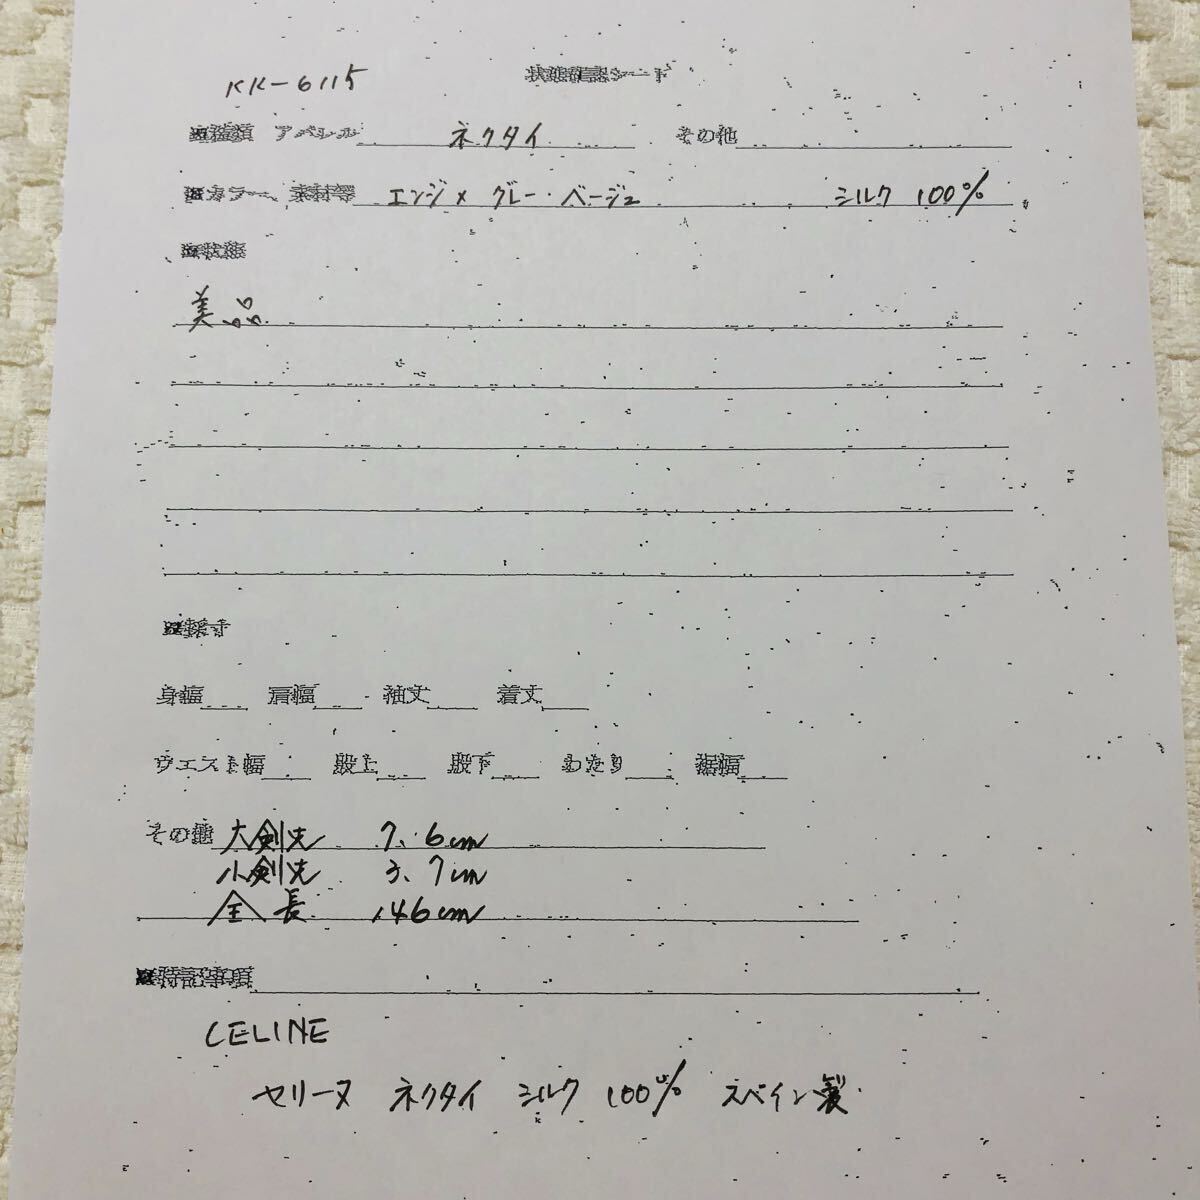 KK-6115
状態確認シート
種類 アパレル ネクタイ その他
カラー 素材等 エンジ×グレー・ベージュ シルク 100%
状態
美品
採寸
身幅 肩幅 袖丈 着丈
ウエスト幅 股上 股下 わたり 裾幅
その他 大剣先 7.6cm
小剣先 3.7cm
全長 146cm
特記事項
CELINE
セリーヌ ネクタイ シルク 100% スペイン製